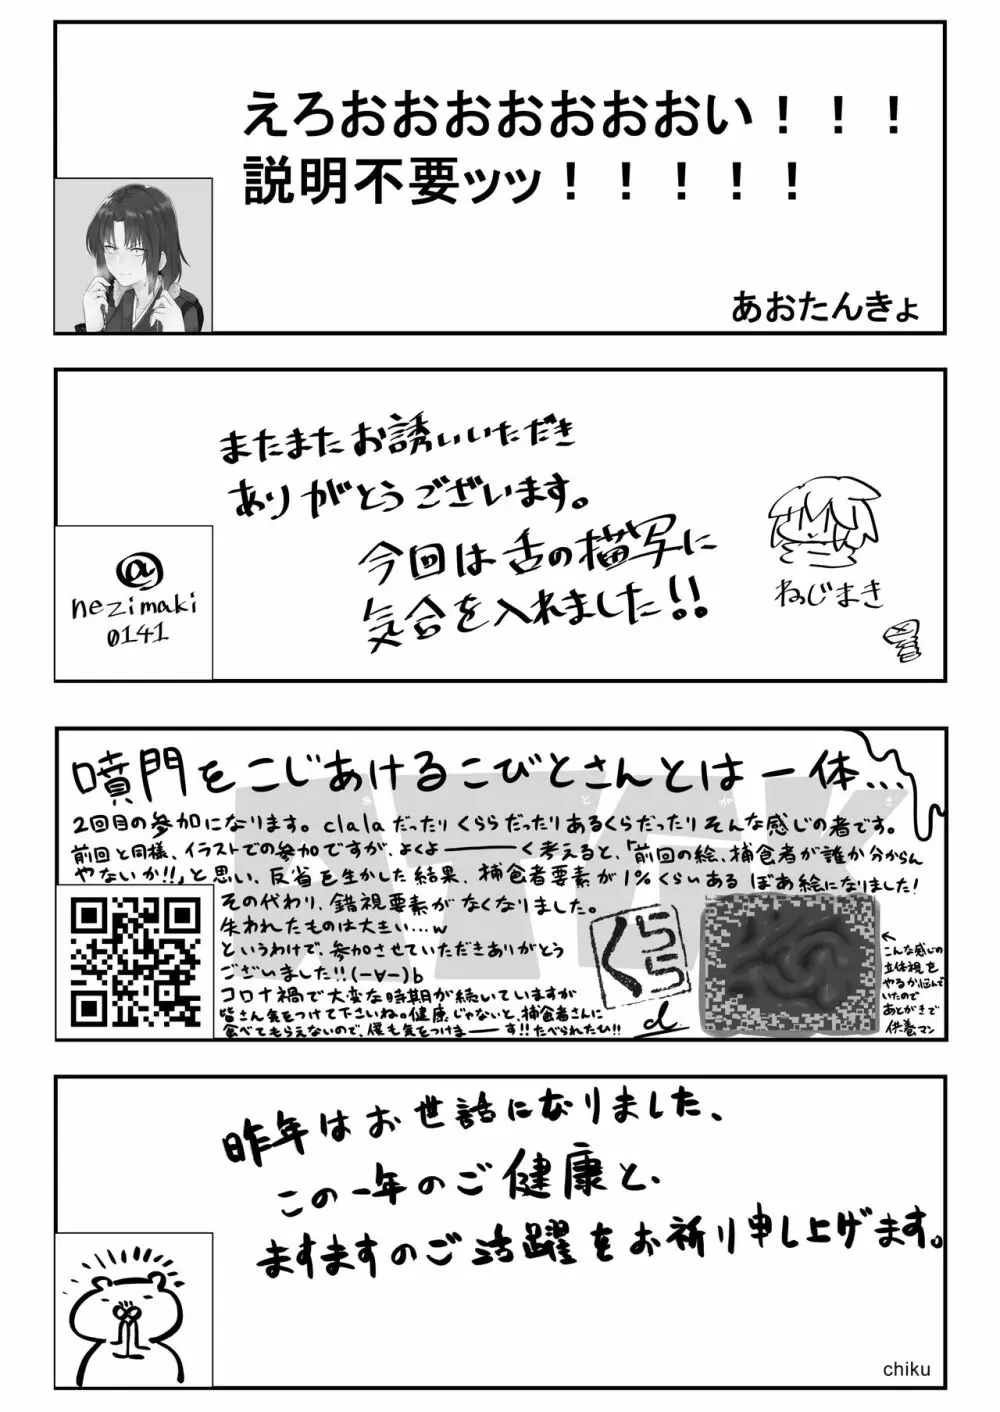 えろおおおおおおおい！！！
説明不要ッッ！！！！！
あおたんきょ
またまたお誘いいただき
ありがとうございます。
今回は舌の描写に
気合を入れました!!
ねじまき
@
nezimaki
0141
噴門をこじあけるこびとさんとは一体…
あとがき
2回目の参加になります。clalaだったりくららだったりあるくらだったりそんな感じの者です。
前回と同様、イラストでの参加ですが、よくよ———く考えると、「前回の絵、捕食者が誰か分からん
やないか!!」と思い、反省を生かした結果、捕食者要素が1%くらいある ぼあ絵になりました!
その代わり、錯視要素がなくなりました。
失われたものは大きい…w
というわけで、参加させていただきありがとう
ございました!!(ー∀ー)b
コロナ禍で大変な時期が続いていますが
皆さん気をつけて下さいね。健康じゃないと、捕食者さんに
食べてもらえないので、僕も気をつけま——す!!たべられたひ!!
くらら
d
←
こんな感じの
立体視を
やるか悩んで
いたので
あとがきで
供養マン
昨年はお世話になりました、
この一年のご健康と、
ますますのご活躍をお祈り申し上げます。
chiku